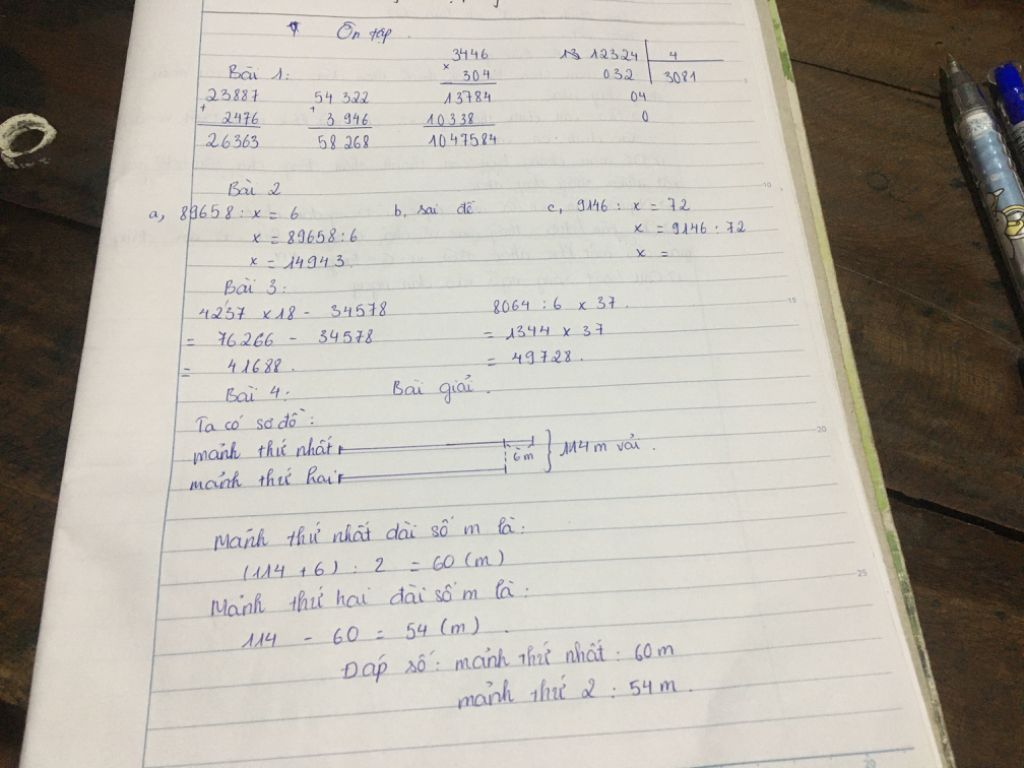 Ôn tập.
Bài 1:
23887
+
2476
26363
54 322
+
3 946
58 268
3446
×
304
13784
10338
1047584
12324 4
032 3081
04
0
Bài 2
a, 89658 : x = 6
x = 89658 : 6
x = 14943.
b, sai đề
c, 9146 : x = 72
x = 9146 : 72
x =
Bài 3:
4237 x 18 - 34578
= 76266 - 34578
= 41688.
8064 : 6 x 37.
= 1344 x 37
= 49728.
Bài 4: Bài giải.
Ta có sơ đồ:
mảnh thứ nhất
6m
114 m vải.
mảnh thứ hai
Mảnh thứ nhất dài số m là:
(114 + 6) : 2 = 60 (m)
Mảnh thứ hai dài số m là:
114 - 60 = 54 (m).
Đáp số: mảnh thứ nhất : 60 m
mảnh thứ 2 : 54 m.
10
15
20
25